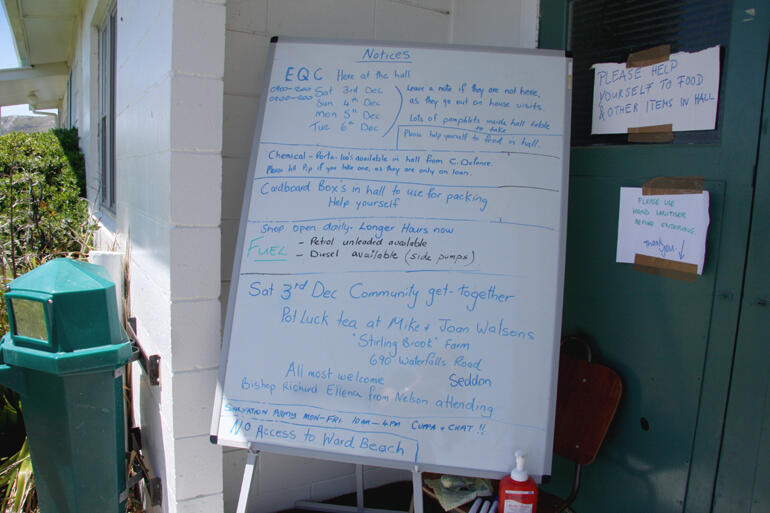 Notices
EQC Here at the hall
Sat 3rd Dec
Sun 4th Dec
Mon 5th Dec
Tue 6th Dec
Leave a note if they are not here,
as they go out on house visits.
Lots of pamphlets inside hall table
to take
Please help yourself to food in hall.
Chemical - Porta-loo's available in hall from C. Defence.
Please tell Pip if you take one, as they are only on loan.
Cardboard Box's in hall to use for packing
Help yourself
Shop open daily - Longer Hours now
FUEL - Petrol unleaded available
- Diesel available (side pumps)
Sat 3rd Dec Community get-together
Pot Luck tea at Mike & Joan Watsons
"Stirling Brook" Farm
690 Waterfalls Road
All most welcome Seddon
Bishop Richard Ellena from Nelson attending
SALVATION ARMY MON-FRI 10AM-4PM CUPPA & CHAT !!
NO Access to Ward Beach
PLEASE HELP
YOURSELF TO FOOD
& OTHER ITEMS IN HALL
PLEASE USE
HAND SANITISER
BEFORE ENTERING
Thankyou